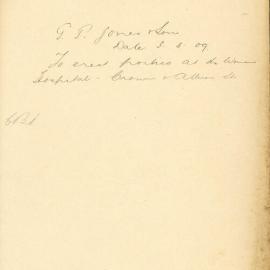 G. P. Jones & Son
Date 3. 5. 09
To erect porches at the Women
Hospital - Crown & Albion St